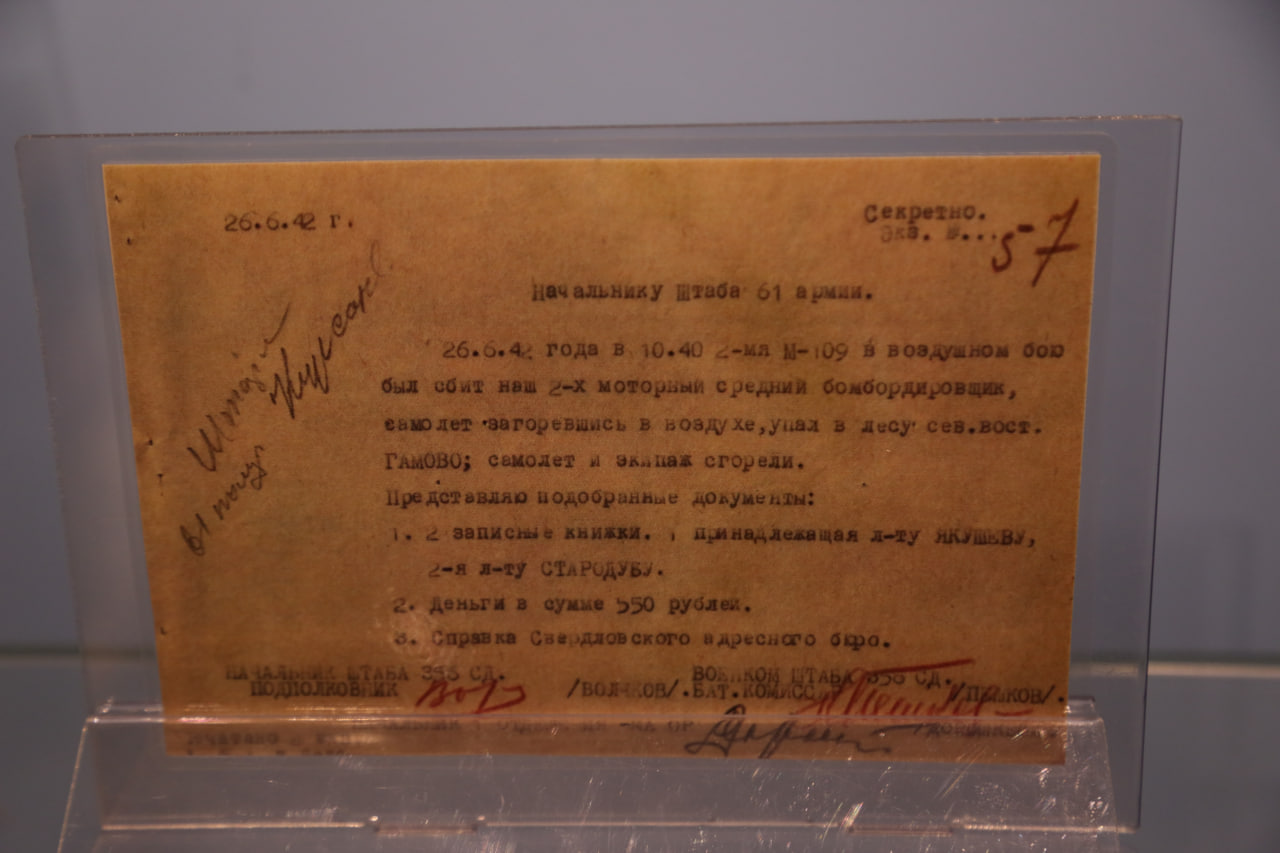 26.6.42 г.
Секретно.
Экз. №...
57
Начальнику Штаба 61 армии.
26.6.42 года в 10.40 2-мя М-109 в воздушном бою
был сбит наш 2-х моторный средний бомбордировщик,
самолет загоревшись в воздухе,упал в лесу сев.вост.
ГАМОВО; самолет и экипаж сгорели.
Представляю подобранные документы:
1. 2 записные книжки. , принадлежащая л-ту ЯКУШЕВУ,
2-я л-ту СТАРОДУБУ.
2. Деньги в сумме 550 рублей.
3. Справка Свердловского адресного бюро.
НАЧАЛЬНИК ШТАБА 356 СД.
ВОЕНКОМ ШТАБА 356 СД.
ПОДПОЛКОВНИК
/ВОЛЧКОВ/.
БАТ.КОМИССАР